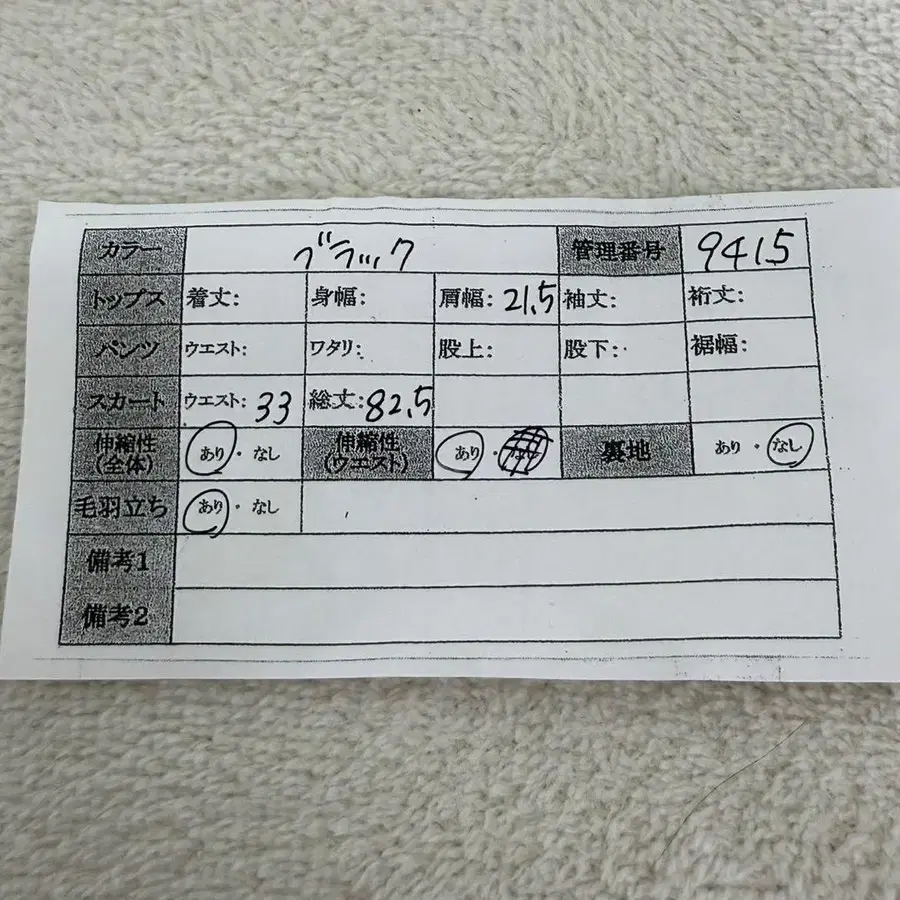 カラー ブラック 管理番号 9415
トップス 着丈: 身幅: 肩幅: 21.5 袖丈: 裄丈:
パンツ ウエスト: ワタリ: 股上: 股下: 裾幅:
スカート ウエスト: 33 総丈: 82.5
伸縮性(全体) あり・なし 伸縮性(ウエスト) あり・ 裏地 あり・なし
毛羽立ち あり・なし
備考1
備考2